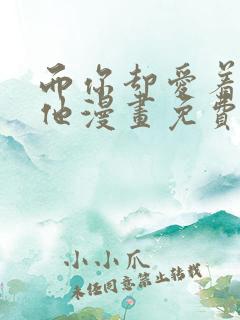 而你却愛着
他漫畫免費
小小爪
未经同意禁止转载